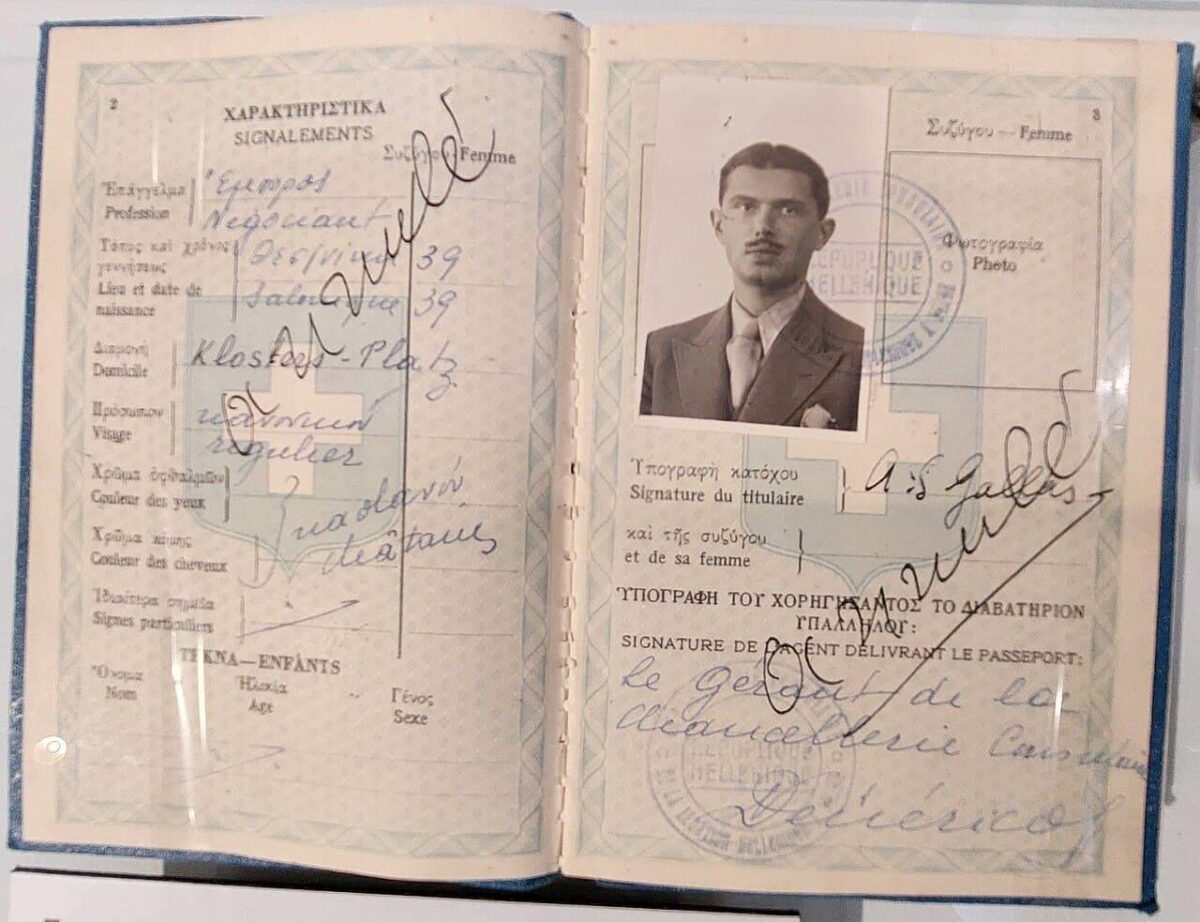 2
ΧΑΡΑΚΤΗΡΙΣΤΙΚΑ
SIGNALEMENTS
Συζύγου-Femme
Ἐπάγγελμα
Profession
Ἔμπορος
Négociant
Τόπος καὶ χρόνος
γεννήσεως
Lieu et date de
naissance
39
Salonique 39
Διαμονὴ
Domicile
Klosters-Platz
Πρόσωπον
Visage
κανονικόν
régulier
Χρῶμα ὀφθαλμῶν
Couleur des yeux
Χρῶμα κόμης
Couleur des cheveux
καστανόν
châtains
Ἰδιαίτερα σημεῖα
Signes particuliers
ΤΕΚΝΑ—ENFANTS
Ὄνομα
Nom
Ἡλικία
Age
Γένος
Sexe
annulé
3
Συζύγου — Femme
Φωτογραφία
Photo
REPUBLIQUE
HELLENIQUE
Ὑπογραφὴ κατόχου
Signature du titulaire
καὶ τῆς συζύγου
et de sa femme
annulé
ὙΠΟΓΡΑΦΗ ΤΟΥ ΧΟΡΗΓΗΣΑΝΤΟΣ ΤΟ ΔΙΑΒΑΤΗΡΙΟΝ
ΥΠΑΛΛΗΛΟΥ:
SIGNATURE DE L'AGENT DÉLIVRANT LE PASSEPORT:
Le Gérant de la
chancellerie Consulaire
REPUBLIQUE
HELLENIQUE